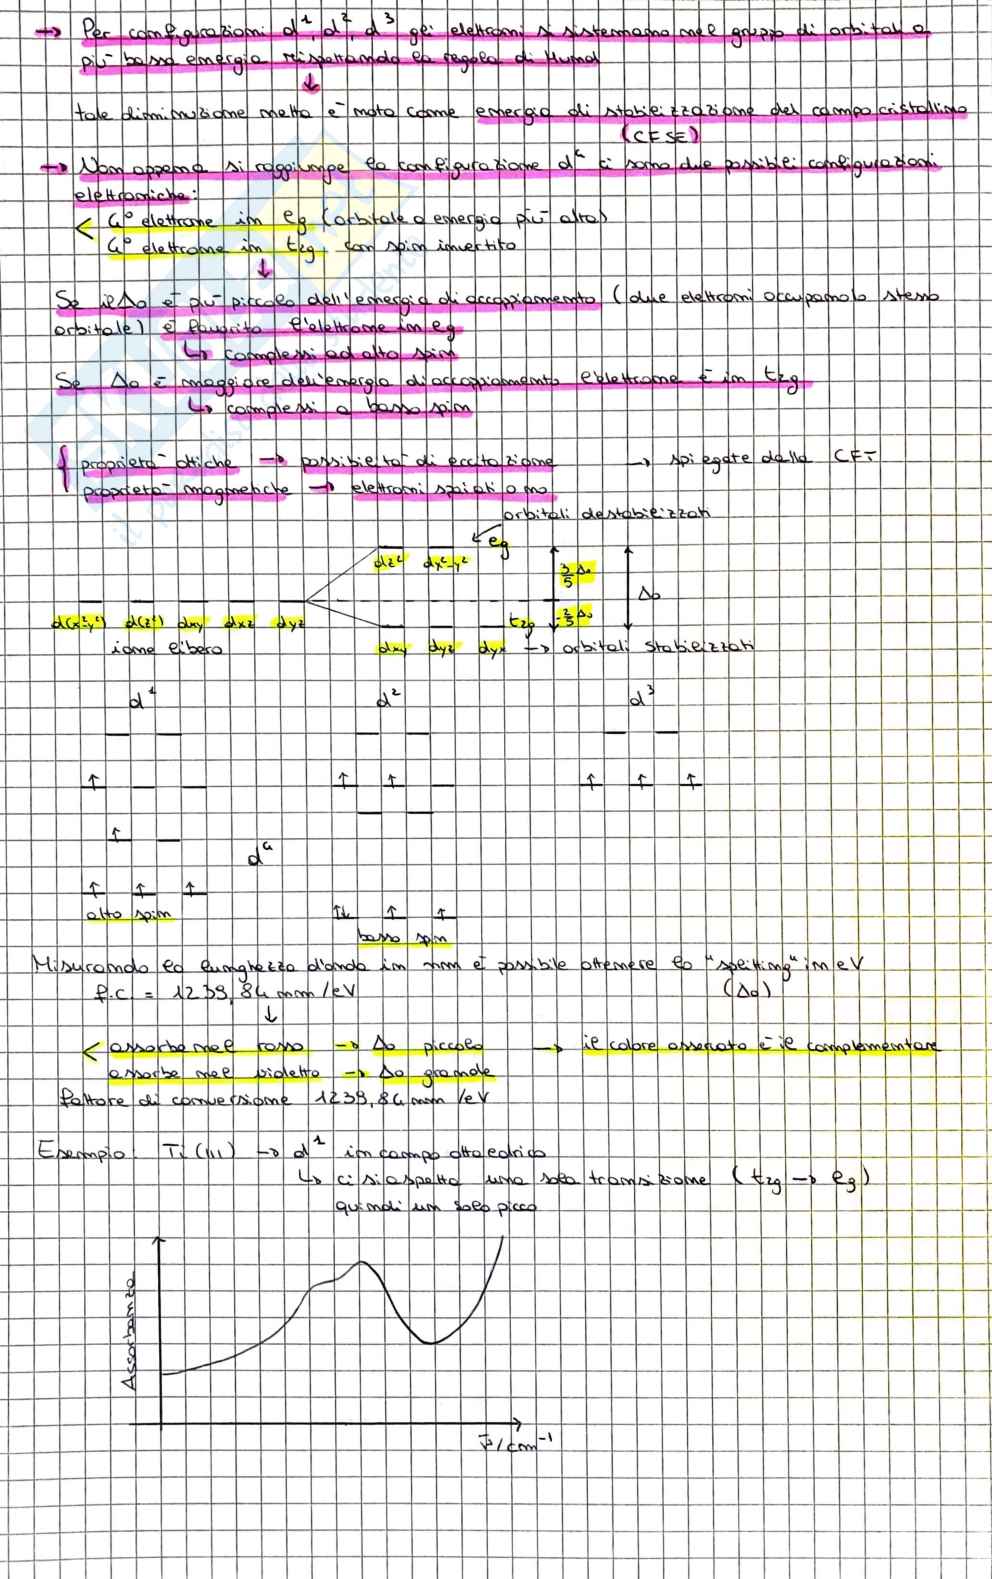 → Per configurazioni d¹, d², d³ gli elettroni si sistemano nel gruppo di orbitali a
più bassa energia rispettando la regola di Hund
↓
tale diminuzione netta è nota come energia di stabilizzazione del campo cristallino
(CFSE)
→ Non appena si raggiunge la configurazione d⁴ ci sono due possibili configurazioni
elettroniche:
< 4° elettrone in eg (orbitale a energia più alta)
4° elettrone in t2g, con spin invertito
↓
Se il Δo è più piccolo dell'energia di accoppiamento (due elettroni occupano lo stesso
orbitale) è favorito l'elettrone in eg
↳ complessi ad alto spin
Se Δo è maggiore dell'energia di accoppiamento l'elettrone è in t2g
↳ complessi a basso spin
{ proprietà ottiche → possibilità di eccitazione → spiegate dalla CFT
proprietà magnetiche → elettroni spaiati o no
orbitali destabilizzati
eg
dz² dx²-y²
3/5 Δo
Δo
d(x²-y²) d(z²) dxy dxz dyz t2g -2/5 Δo
ione libero dxy dyz dyx → orbitali stabilizzati
d¹ d² d³
↑ ↑ ↑ ↑ ↑ ↑
↑
d⁴
↑ ↑ ↑
alto spin ↑↓ ↑ ↑
basso spin
Misurando la lunghezza d'onda in nm è possibile ottenere lo "splitting" in eV
f.c. = 1239,84 nm/eV (Δo)
↓
< assorbe nel rosso → Δo piccolo → il colore osservato è il complementare
assorbe nel violetto → Δo grande
fattore di conversione 1239,84 nm/eV
Esempio: Ti(III) → d¹ in campo ottaedrico
↳ ci si aspetta una sola transizione (t2g → eg)
quindi un solo picco
Assorbanza
ν̃/cm⁻¹